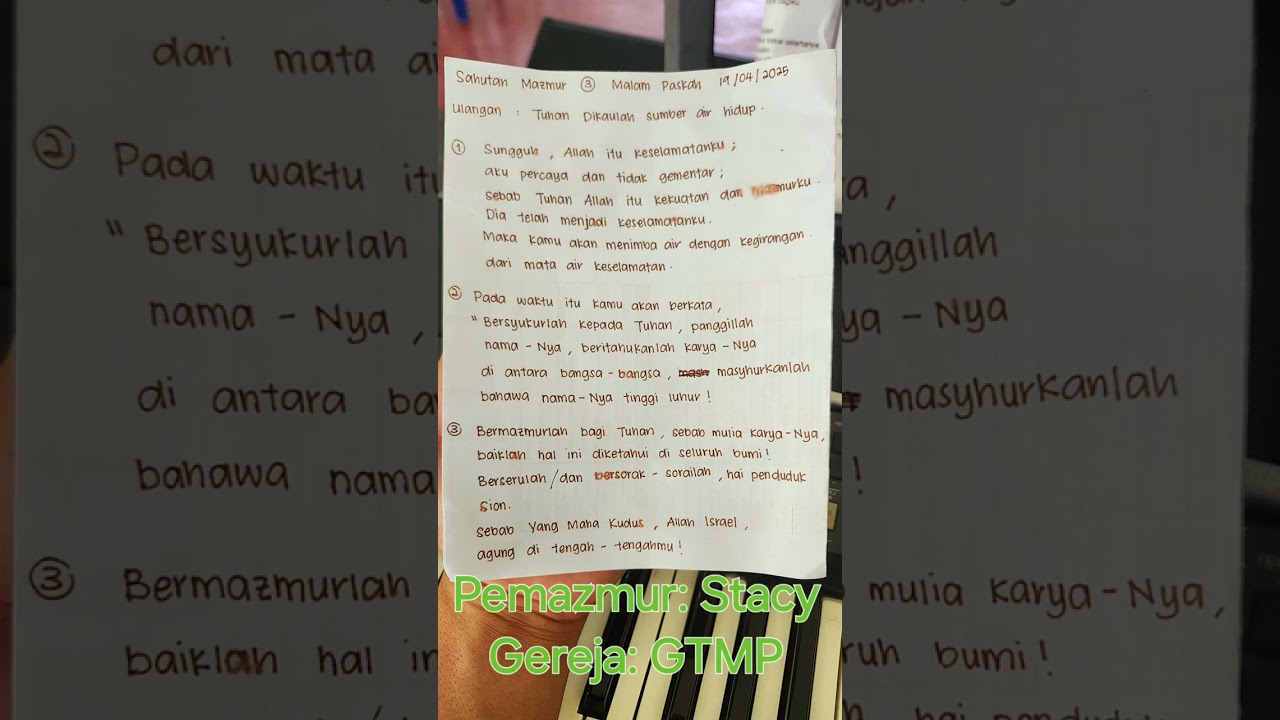 Sahutan Mazmur ③ Malam Paskah 19/04/2025
Ulangan : Tuhan Dikaulah sumber air hidup.
① Sungguh, Allah itu keselamatanku;
aku percaya dan tidak gementar;
Sebab Tuhan Allah itu kekuatan dan mazmurku.
Dia telah menjadi keselamatanku.
Maka kamu akan menimba air dengan kegirangan.
dari mata air keselamatan.
② Pada waktu itu kamu akan berkata,
"Bersyukurlah kepada Tuhan, panggillah
nama-Nya, beritahukanlah karya-Nya
di antara bangsa-bangsa, masyhurkanlah
bahawa nama-Nya tinggi luhur!
③ Bermazmurlah bagi Tuhan, sebab mulia karya-Nya,
baiklah hal ini diketahui di seluruh bumi!
Berserulah/dan bersorak-sorailah, hai penduduk
Sion.
Sebab Yang Maha Kudus, Allah Israel,
agung di tengah-tengahmu!
Pemazmur: Stacy
Gereja: GTMP